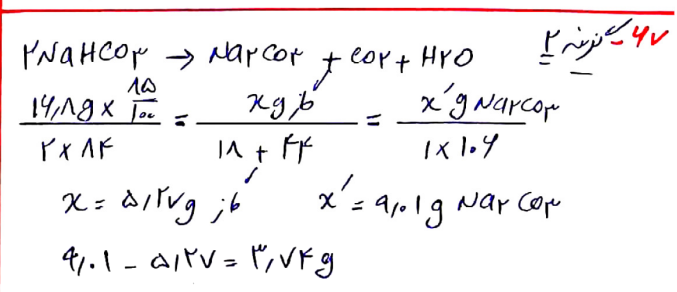 ۶۷- گزینه ۲
۲NaHCO۳ → Na۲CO۳ + CO۲ + H۲O
۱۶٫۸g × ۸۵/۱۰۰ / ۲×۸۴ = xg گاز / ۱۸ + ۴۴ = x′g Na۲CO۳ / ۱×۱۰۶
x = ۵٫۲۷g گاز x′ = ۹٫۰۱g Na۲CO۳
۹٫۰۱ − ۵٫۲۷ = ۳٫۷۴g